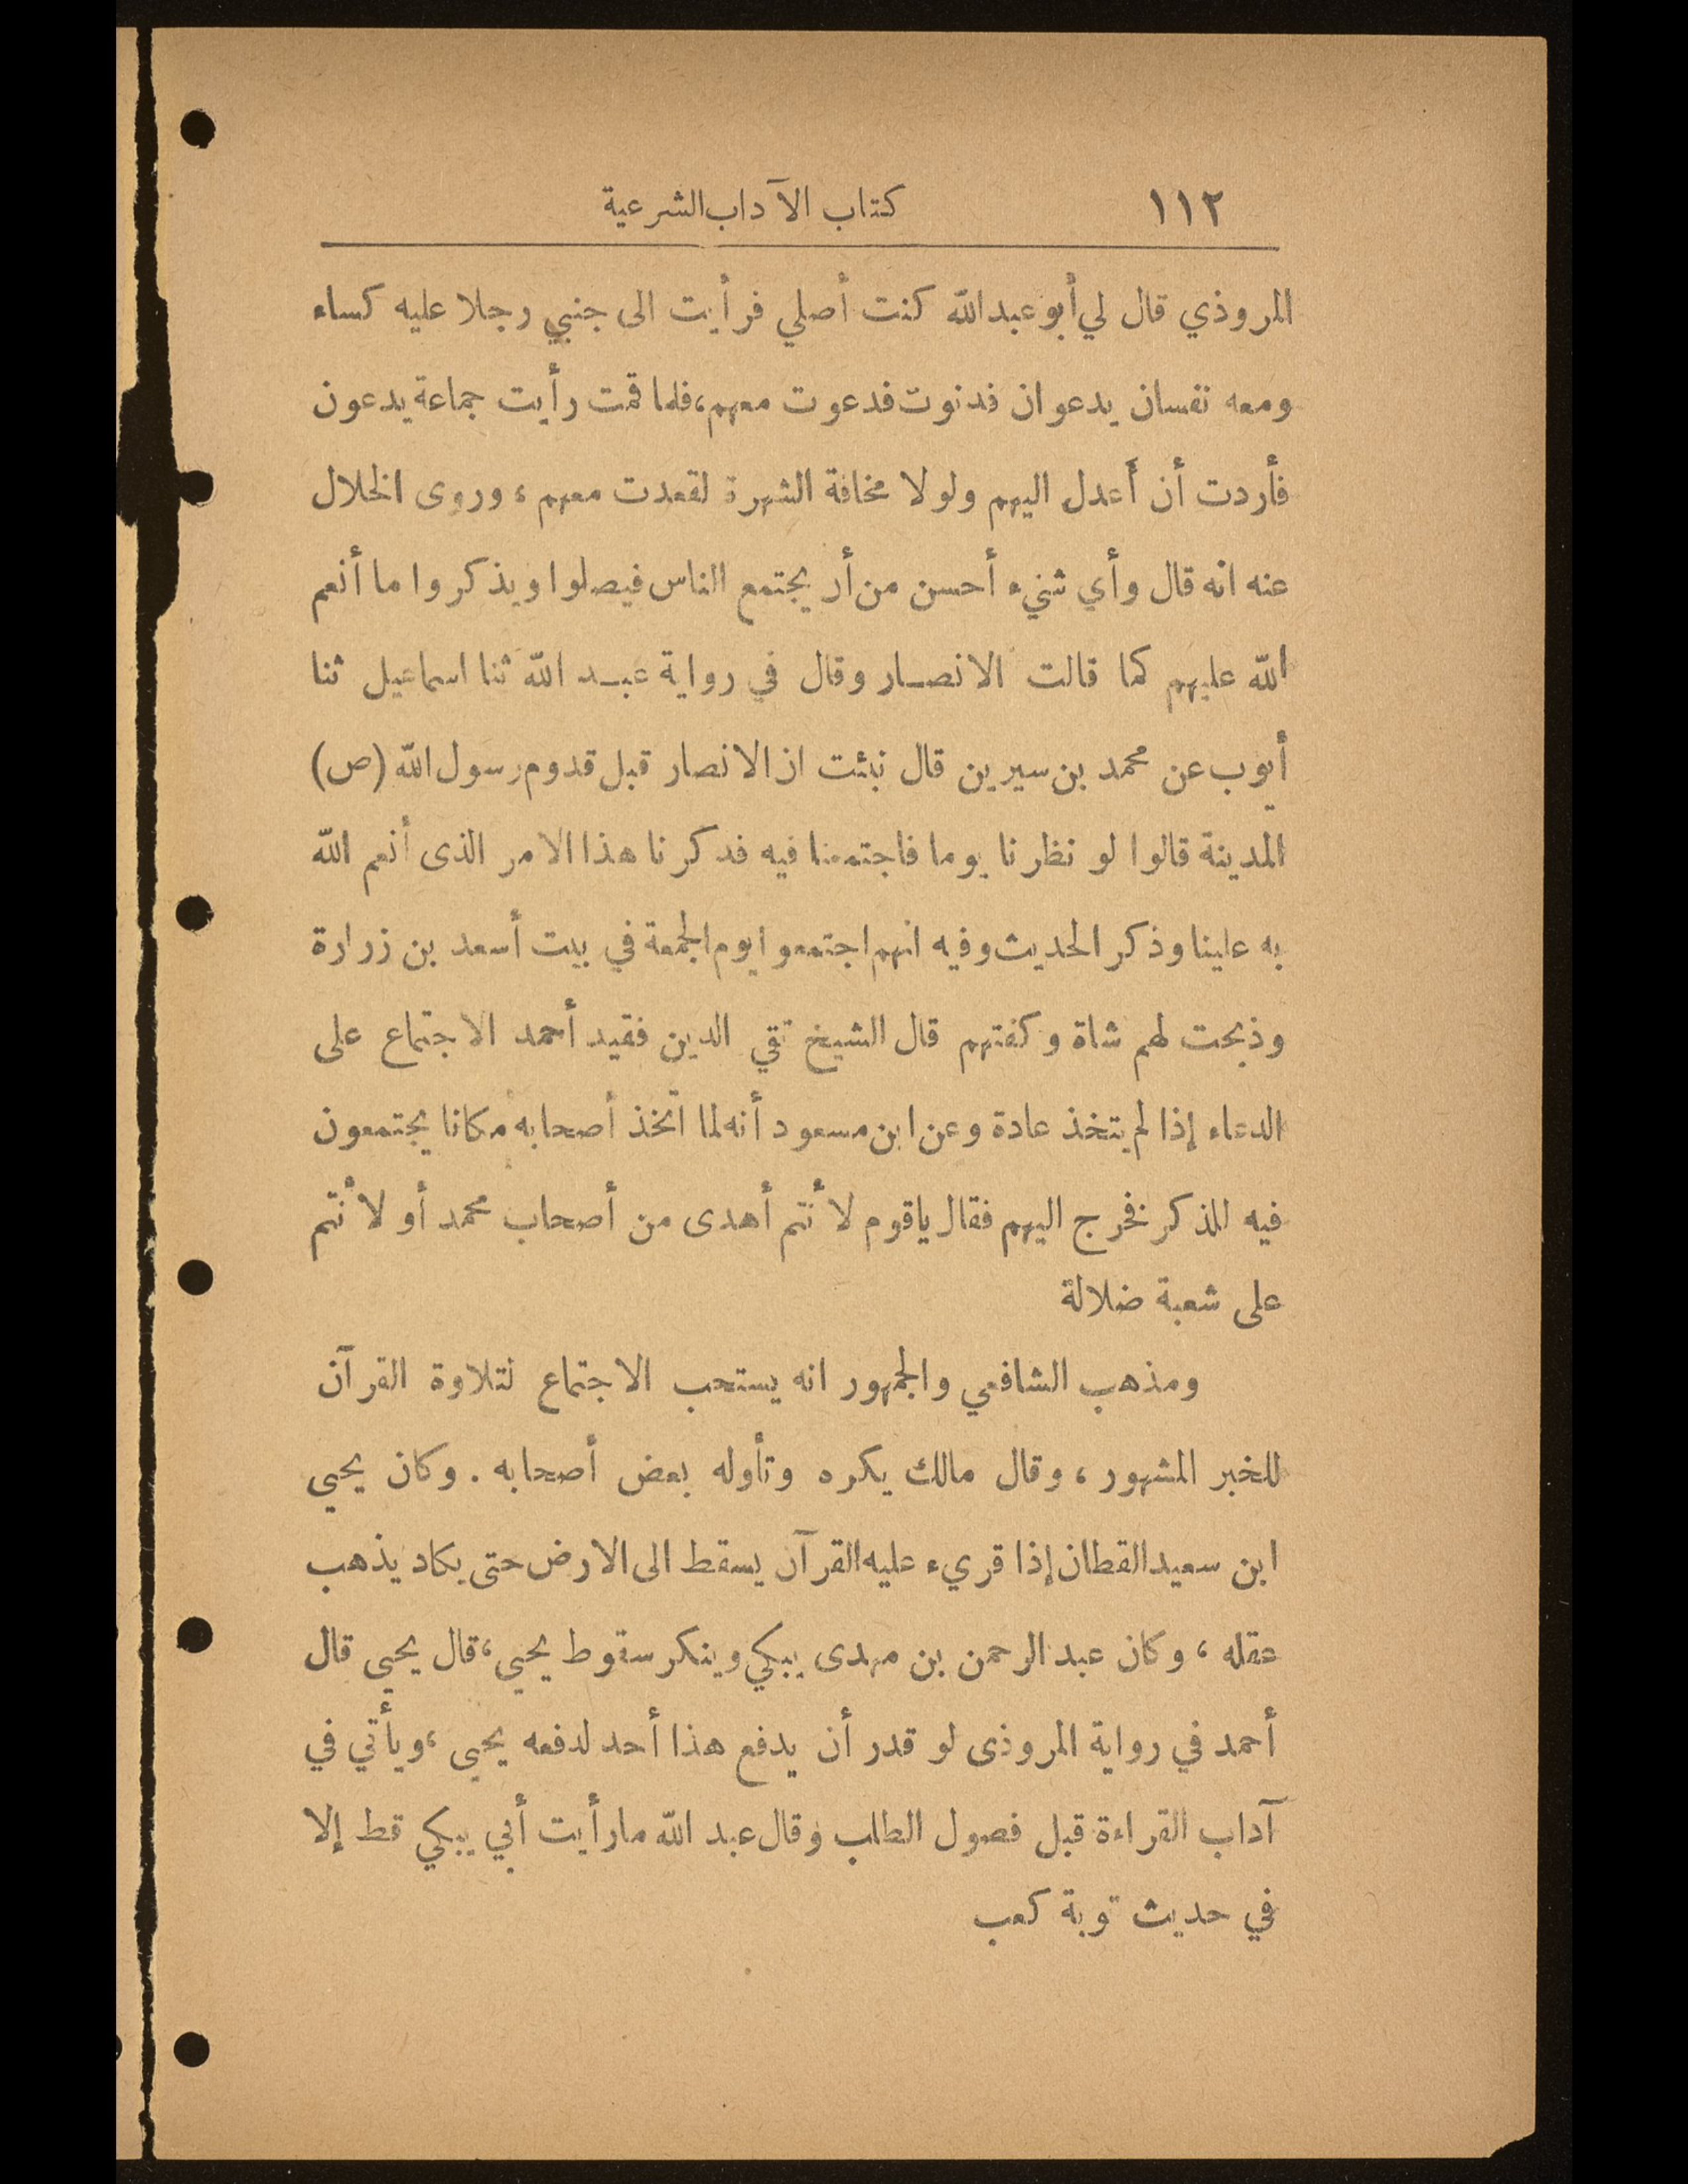 ١١٢ كتاب الآداب الشرعية
المروذي قال لي أبو عبد الله كنت أصلي فرأيت الى جنبي رجلا عليه كساء
ومعه نفسان يدعوان فدنوت فدعوت معهم، فلما قمت رأيت جماعة يدعون
فأردت أن أعدل اليهم ولولا مخافة الشهرة لقعدت معهم، وروى الخلال
عنه انه قال وأي شيء أحسن من أن يجتمع الناس فيصلوا ويذكروا ما أنعم
الله عليهم كما قالت الانصار وقال في رواية عبد الله ثنا اسماعيل ثنا
أيوب عن محمد بن سيرين قال نبئت ان الانصار قبل قدوم رسول الله (ص)
المدينة قالوا لو نظرنا يوما فاجتمعنا فيه فذكرنا هذا الامر الذى أنعم الله
به علينا وذكر الحديث وفيه انهم اجتمعوا يوم الجمعة في بيت أسعد بن زرارة
وذبحت لهم شاة وكفتهم قال الشيخ تقي الدين فقيد أحمد الاجتماع على
الدعاء إذا لم يتخذ عادة وعن ابن مسعود أنه لما اتخذ أصحابه مكانا يجتمعون
فيه للذكر نخرج اليهم فقال ياقوم لأنتم أهدى من أصحاب محمد أو لأنتم
على شعبة ضلالة
ومذهب الشافعي والجمهور انه يستحب الاجتماع لتلاوة القرآن
للخبر المشهور، وقال مالك يكره وتأوله بعض أصحابه. وكان يحيى
ابن سعيد القطان إذا قريء عليه القرآن يسقط الى الارض حتى يكاد يذهب
عقله، وكان عبد الرحمن بن مهدى يبكي وينكر سقوط يحيى، قال يحيى قال
أحمد في رواية المروذى لو قدر أن يدفع هذا أحد لدفعه يحيى، ويأتي في
آداب القراءة قبل فصول الطلب وقال عبد الله ما رأيت أبي يبكي قط إلا
في حديث توبة كعب